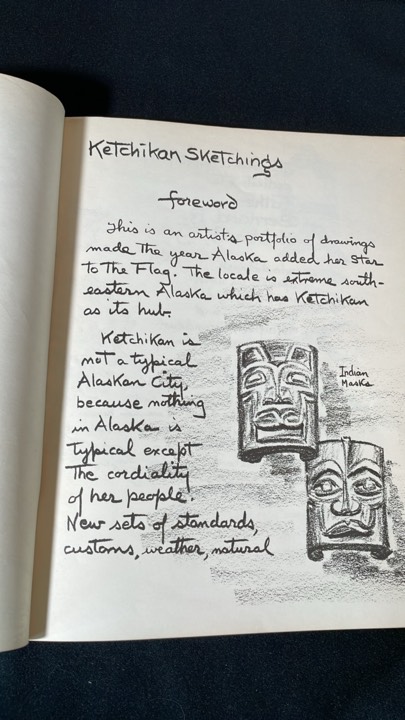 Ketchikan Sketchings
foreword
This is an artist's portfolio of drawings
made The year Alaska added her Star
To The Flag. The locale is extreme south-
eastern Alaska which has Ketchikan
as its hub.
Ketchikan is
not a typical
Alaskan City,
because nothing
in Alaska is
Typical except
The cordiality
of her people.
New sets of standards,
customs, weather, natural
Indian
Masks